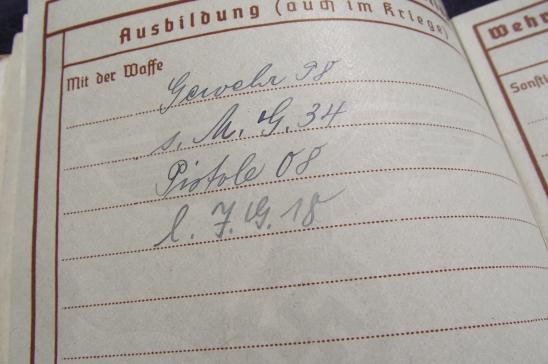 Ausbildung (auch im Kriege)
Mit der Waffe
Gewehr 98
s. M. G. 34
Pistole 08
l. J. G. 18
Wehr
Sonsti